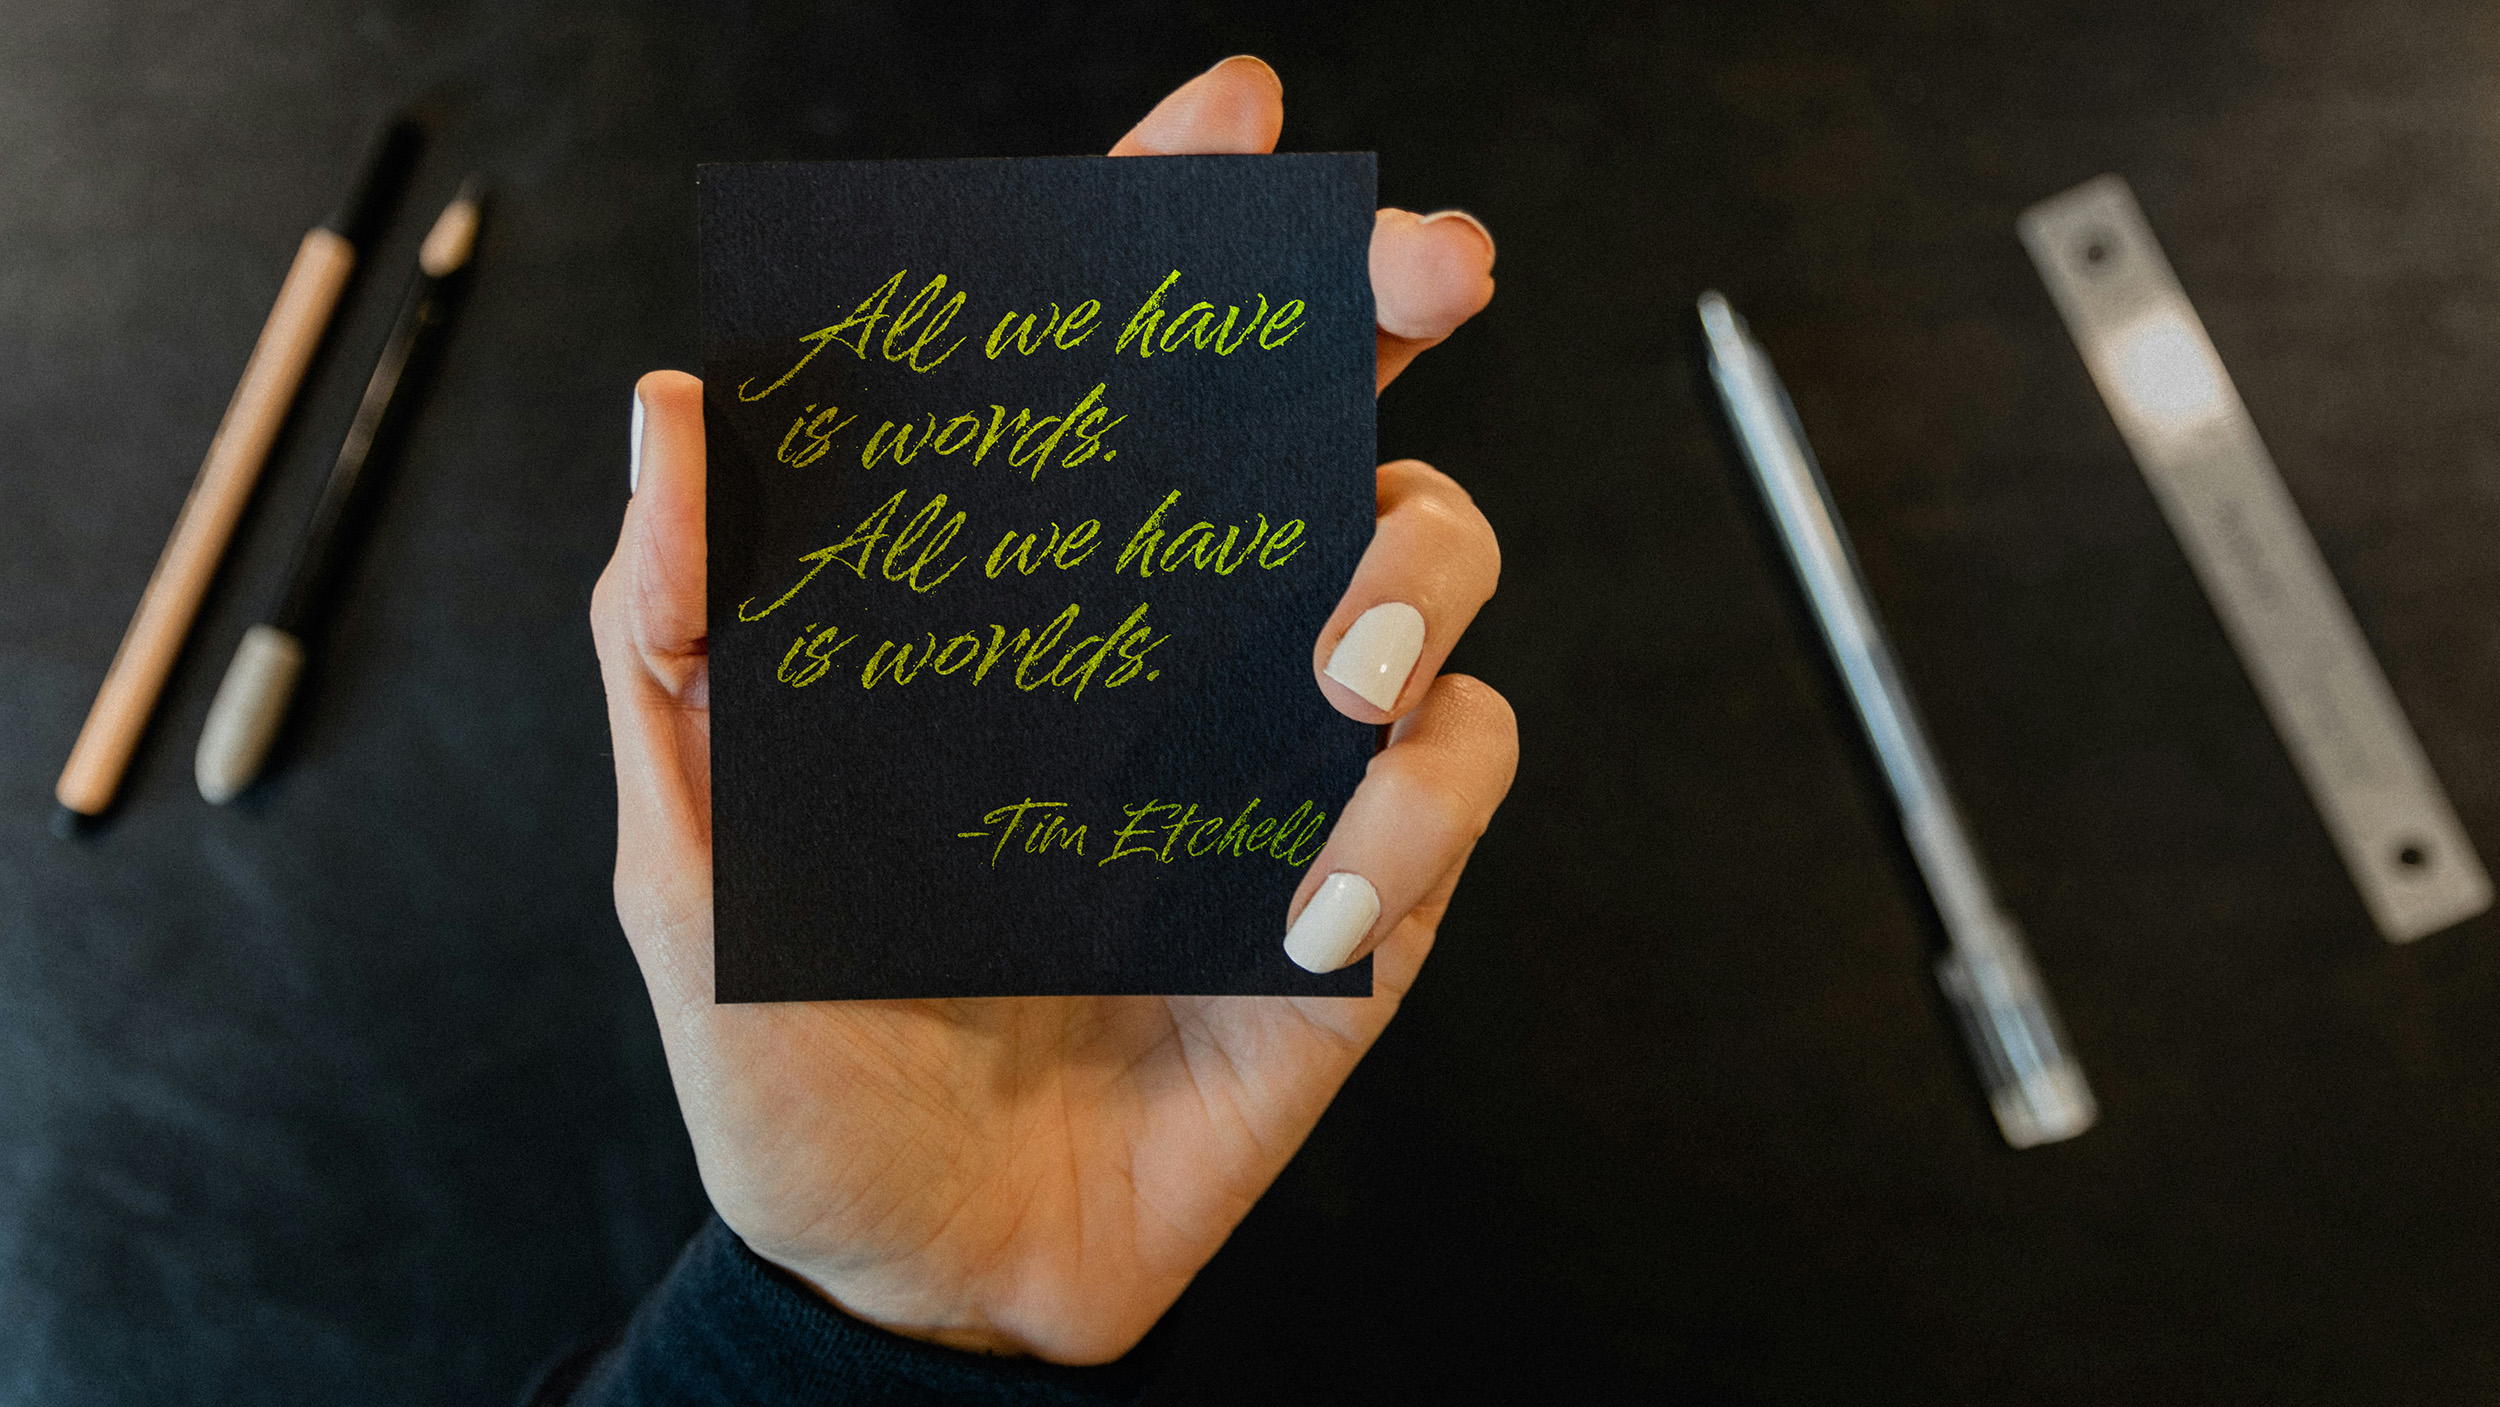 All we have
is words.
All we have
is worlds.
-Tim Etchell